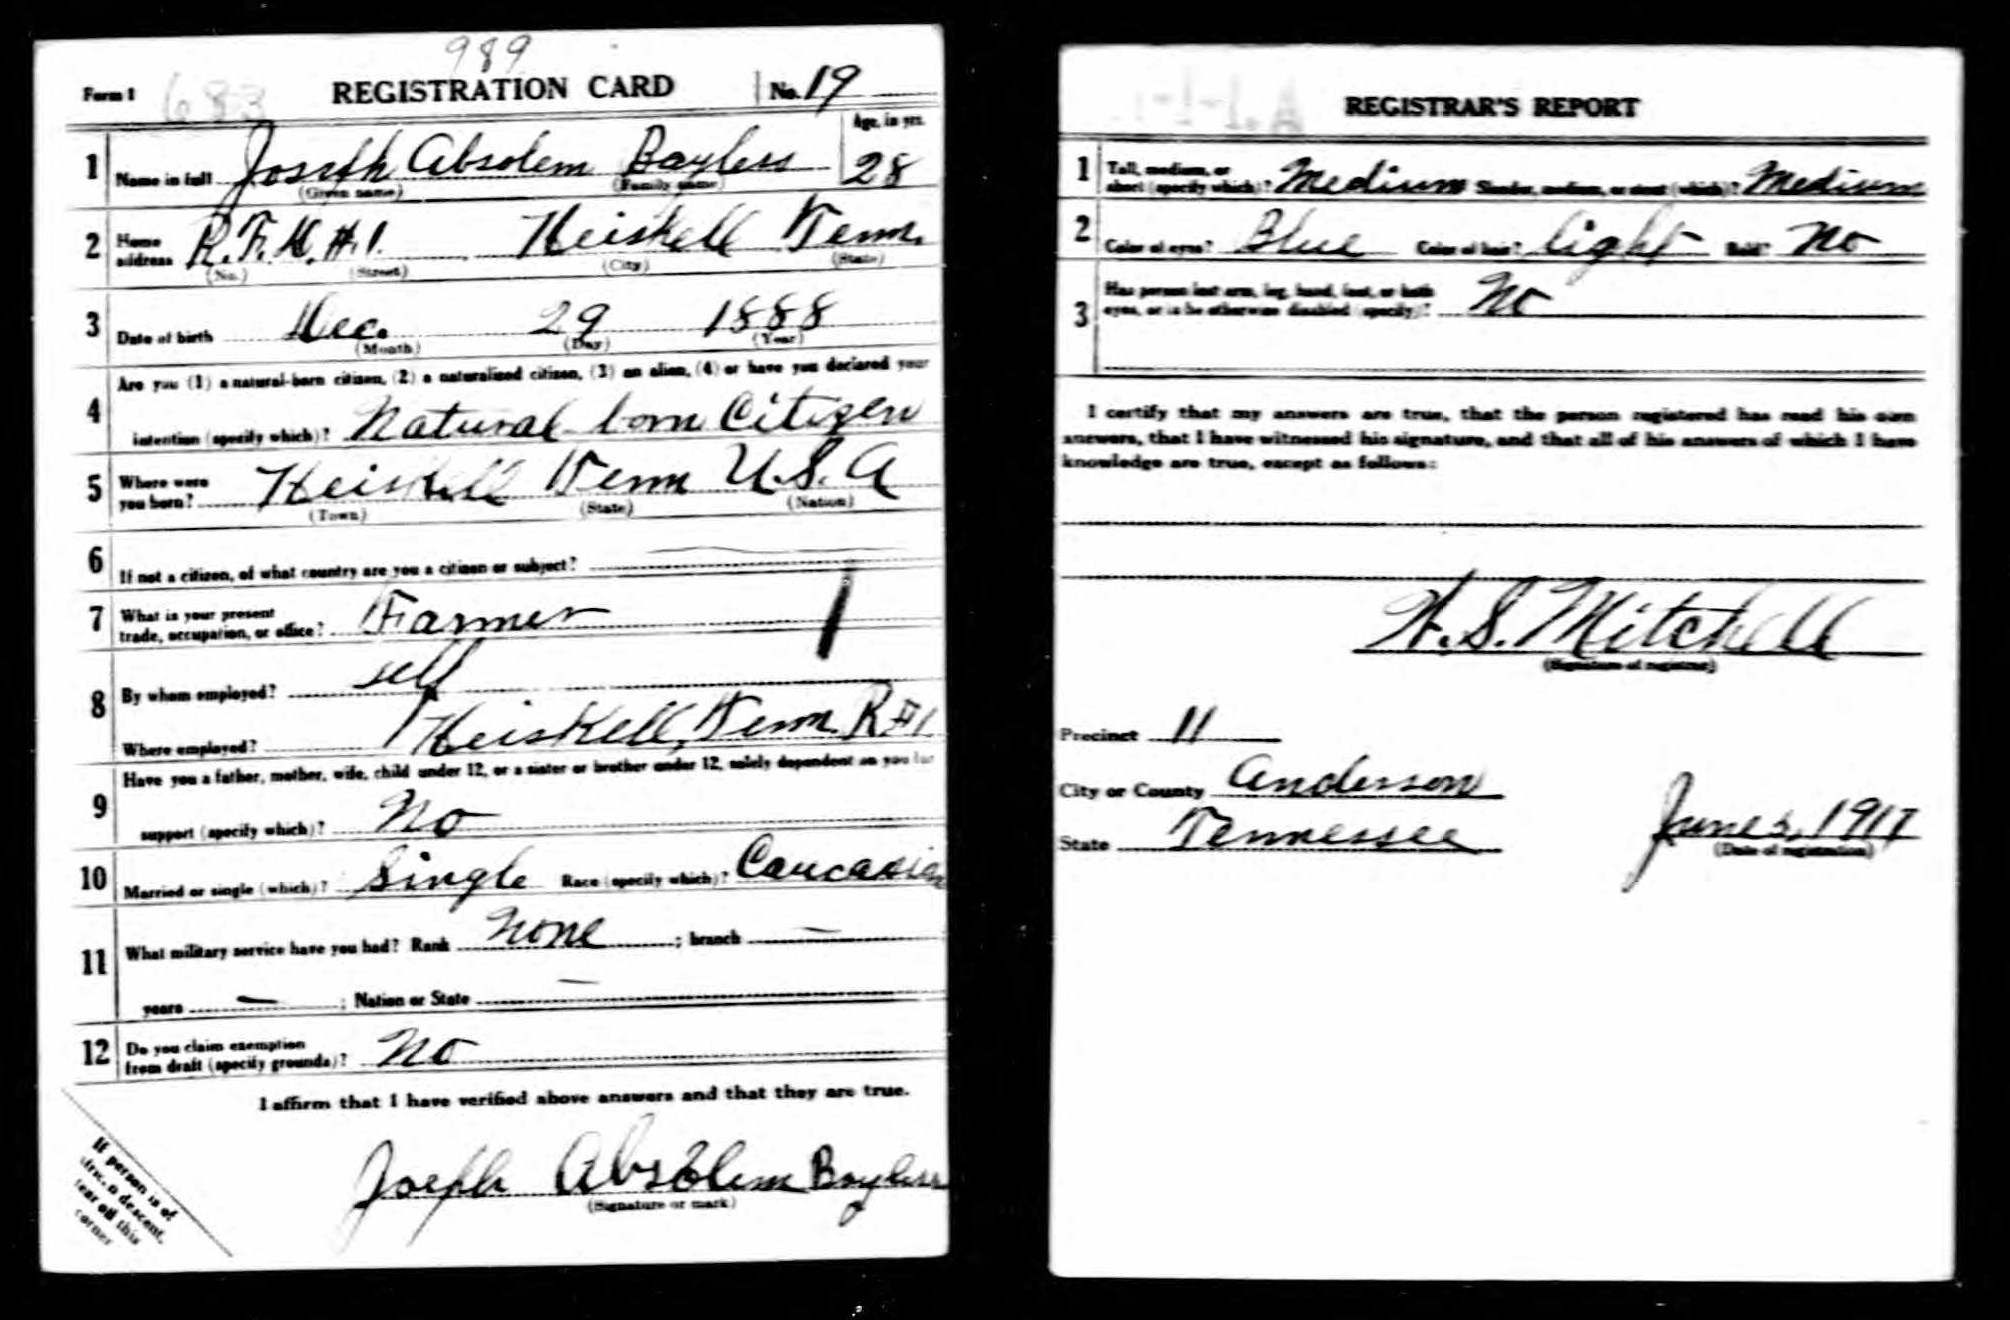 989
Form 1 683 REGISTRATION CARD No. 19
Age, in yrs.
1 Name in full Joseph Absolem Bayless 28
(Given name) (Family name)
2 Home address R.F.D.#.1. Heiskell Tenn.
(No.) (Street) (City) (State)
3 Date of birth Dec. 29 1888
(Month) (Day) (Year)
Are you (1) a natural-born citizen, (2) a naturalized citizen, (3) an alien, (4) or have you declared your
4 intention (specify which)? Natural born Citizen
5 Where were you born? Heiskell Tenn U.S.A
(Town) (State) (Nation)
6 If not a citizen, of what country are you a citizen or subject?
7 What is your present trade, occupation, or office? Farmer
8 By whom employed? self
Where employed? Heiskell, Tenn. R#1
Have you a father, mother, wife, child under 12, or a sister or brother under 12, solely dependent on you for
9 support (specify which)? No
10 Married or single (which)? Single Race (specify which)? Caucasian
11 What military service have you had? Rank None ; branch —
years — ; Nation or State —
12 Do you claim exemption from draft (specify grounds)? No
I affirm that I have verified above answers and that they are true.
Joseph Absolem Bayless
(Signature or mark)
If person is of
African descent,
tear off this
corner
REGISTRAR'S REPORT
1 Tall, medium, or short (specify which)? Medium Slender, medium, or stout (which)? Medium
2 Color of eyes? Blue Color of hair? light Bald? No
3 Has person lost arm, leg, hand, foot, or both eyes, or is he otherwise disabled (specify)? No
I certify that my answers are true, that the person registered has read his own
answers, that I have witnessed his signature, and that all of his answers of which I have
knowledge are true, except as follows:
W.S. Mitchell
(Signature of registrar)
Precinct 11
City or County Anderson
State Tennessee June 5, 1917
(Date of registration)